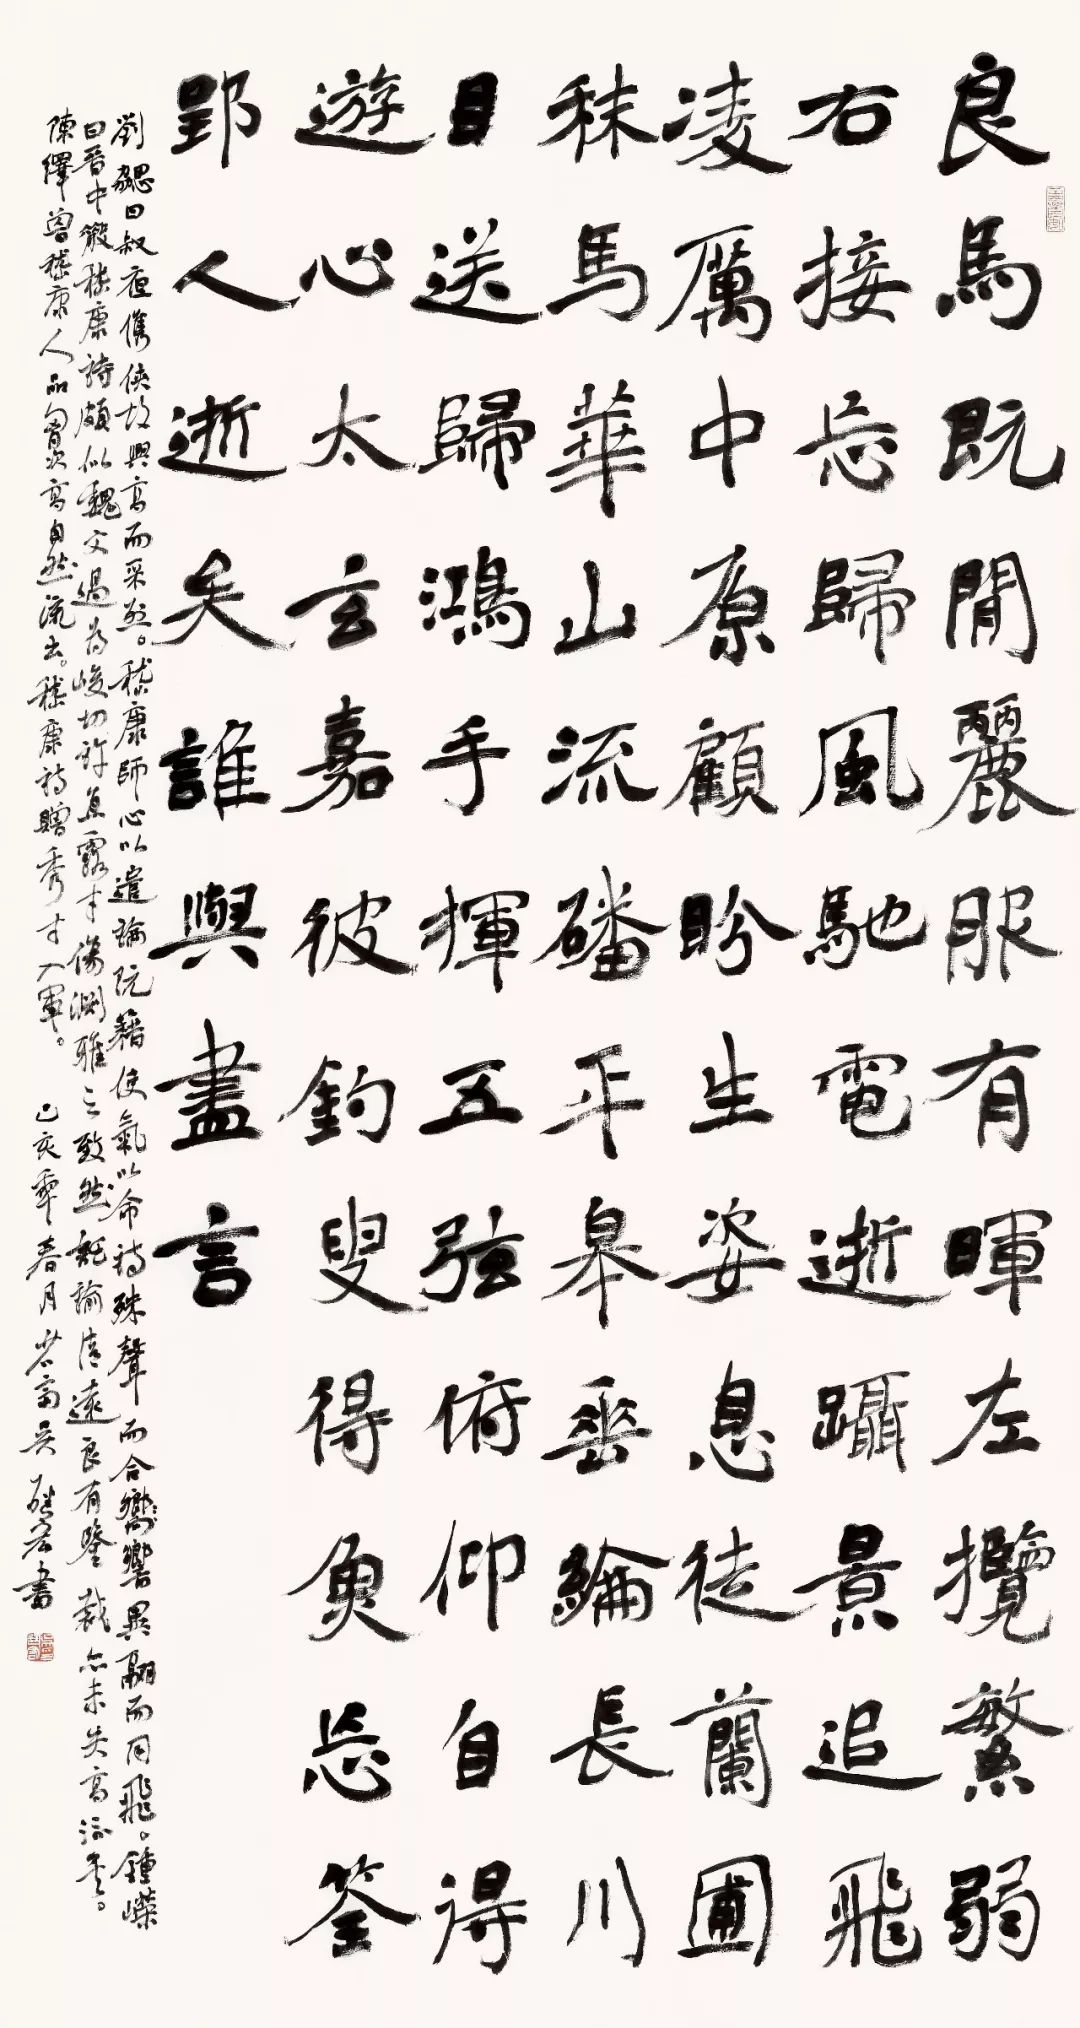 良馬既閑麗服有暉左攬繁弱
右接忘歸風馳電逝躡景追飛
凌厲中原顧盼生姿息徒蘭圃
秣馬華山流磻平皋垂綸長川
目送歸鴻手揮五弦俯仰自得
遊心太玄嘉彼釣叟得魚忘筌
郢人逝矣誰與盡言
劉勰曰叔夜儁俠故興高而采烈。嵇康師心以遣論阮籍使氣以命詩殊聲而合響異翮而同飛。鍾嶸
曰晉中散嵇康詩頗似魏文過為峻切訐直露才傷淵雅之致然託諭清遠良有鑒裁亦未失高流矣。
陳繹曾嵇康人品胸次高自然流出。嵇康詩贈秀才入軍。 己亥年春月 書